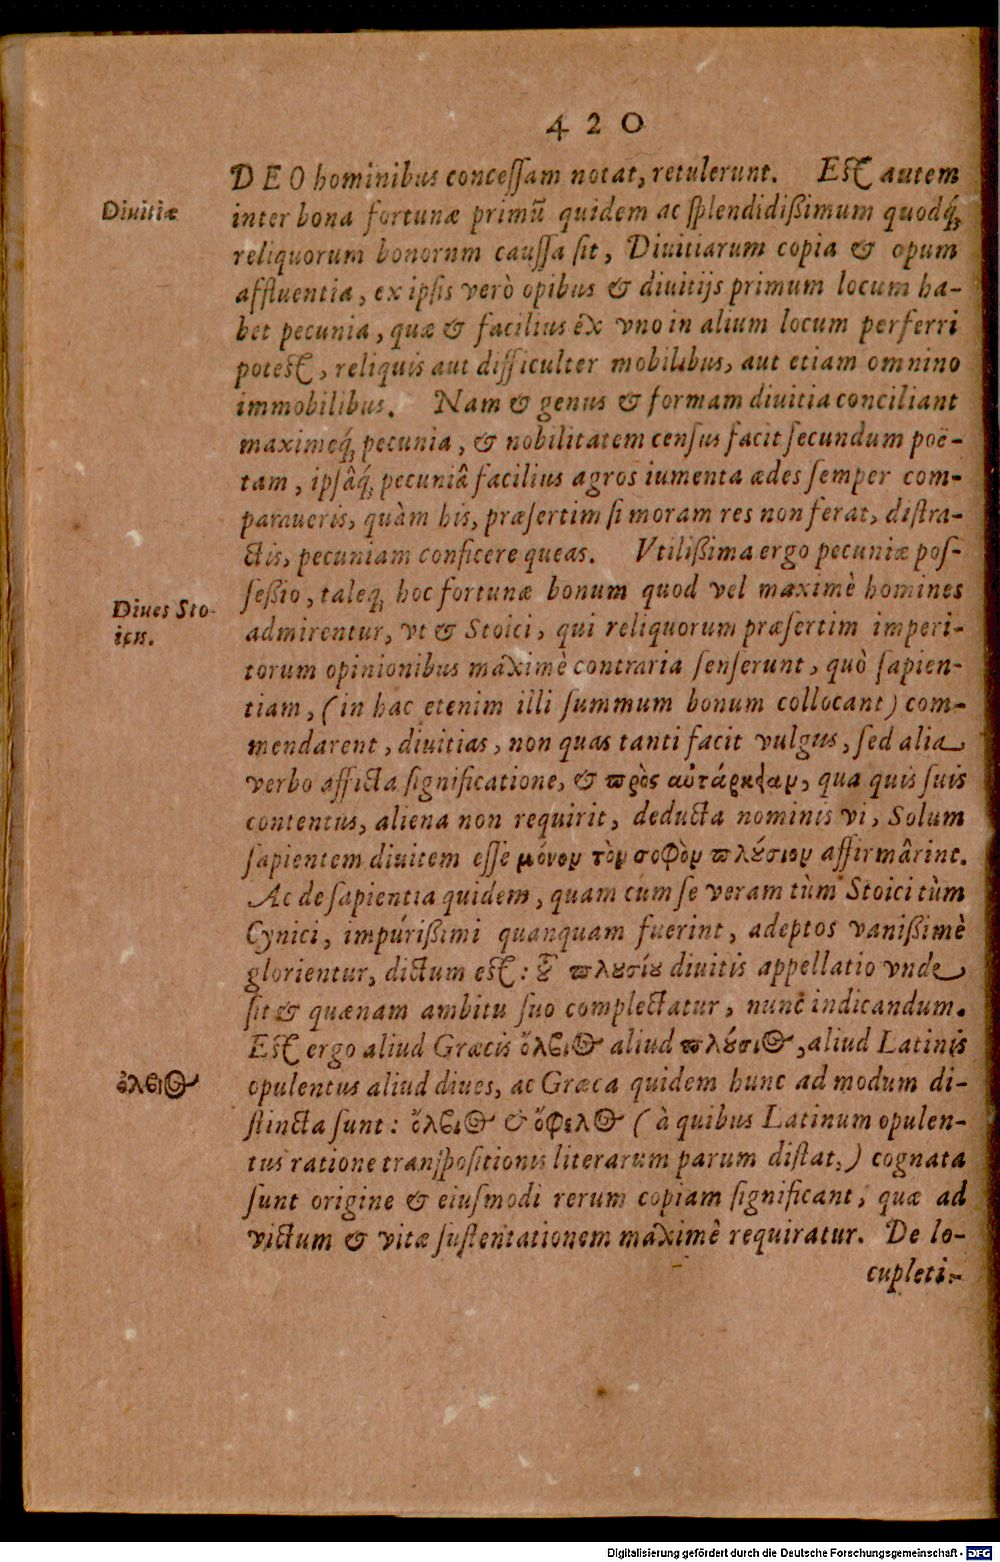 420
DEO hominibus conceſſam notat, retulerunt. Eſt autem
Diuitiæ
inter bona fortunæ primũ quidem ac ſplendidißimum quodq́;
reliquorum bonornm cauſſa ſit, Diuitiarum copia & opum
affluentia, ex ipſis verò opibus & diuitijs primum locum ha-
bet pecunia, quæ & facilius ex vno in alium locum perferri
poteſt, reliquis aut difficulter mobilibus, aut etiam omnino
immobilibus. Nam & genus & formam diuitia conciliant
maximeq́; pecunia, & nobilitatem cenſus facit ſecundum poë-
tam, ipſâq́; pecuniâ facilius agros iumenta ædes ſemper com-
paraueris, quàm his, præſertim ſi moram res non ferat, diſtra-
ctis, pecuniam conficere queas. Vtilißima ergo pecuniæ poſ-
ſeßio, taleq; hoc fortunæ bonum quod vel maximè homines
Diues Sto-
icus.
admirentur, vt & Stoici, qui reliquorum præſertim imperi-
torum opinionibus maximè contraria ſenſerunt, quò ſapien-
tiam, (in hac etenim illi ſummum bonum collocant) com-
mendarent, diuitias, non quas tanti facit vulgus, ſed alia
verbo afficta ſignificatione, & πρὸς αὐτάρκειαν, qua quis ſuis
contentus, aliena non requirit, deducta nominis vi, Solum
ſapientem diuitem eſſe μόνον τὸν σοφὸν πλούσιον affirmârint.
Ac de ſapientia quidem, quam cum ſe veram tùm Stoici tùm
Cynici, impurißimi quanquam fuerint, adeptos vanißimè
glorientur, dictum eſt: τοῦ πλουσίου diuitis appellatio vnde
ſit & quænam ambitu ſuo complectatur, nunc indicandum.
Eſt ergo aliud Græcis ὄλβιος aliud πλούσιος, aliud Latinis
ὄλβιος
opulentus aliud diues, ac Græca quidem hunc ad modum di-
ſtincta ſunt: ὄλβιος & ὄφελος (à quibus Latinum opulen-
tus ratione tranſpoſitionis literarum parum diſtat,) cognata
ſunt origine & eiuſmodi rerum copiam ſignificant, quæ ad
victum & vitæ ſuſtentationem maximè requiratur. De lo-
cupleti-
Digitalisierung gefördert durch die Deutsche Forschungsgemeinschaft - DFG